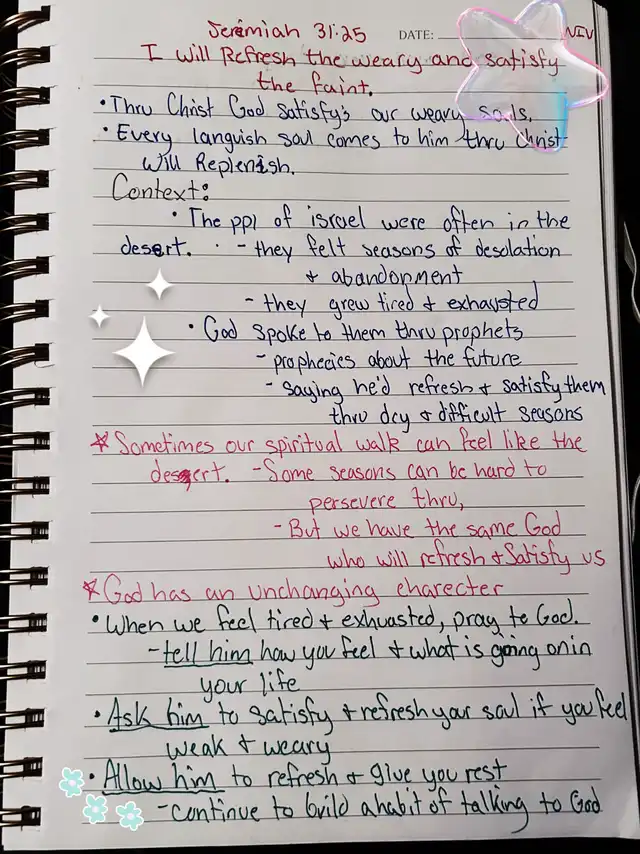 Jeremiah 31:25 DATE: NIV
I will Refresh the weary and satisfy
the faint.
• Thru Christ God satisfy's our weary souls.
• Every languish soul comes to him thru Christ
will Replenish.
Context:
• The ppl of israel were often in the
desert. - they felt seasons of desolation
+ abandonment
- they grew tired + exhausted
• God spoke to them thru prophets
- prophecies about the future
- saying he'd refresh + satisfy them
thru dry + difficult seasons
* Sometimes our spiritual walk can feel like the
desert. - Some seasons can be hard to
persevere thru,
- But we have the same God
who will refresh + Satisfy us
* God has an unchanging charecter
• When we feel tired + exhuasted, pray to God.
- tell him how you feel + what is going on in
your life
• Ask him to satisfy + refresh your soul if you feel
weak + weary
• Allow him to refresh + give you rest
- continue to build a habit of talking to God